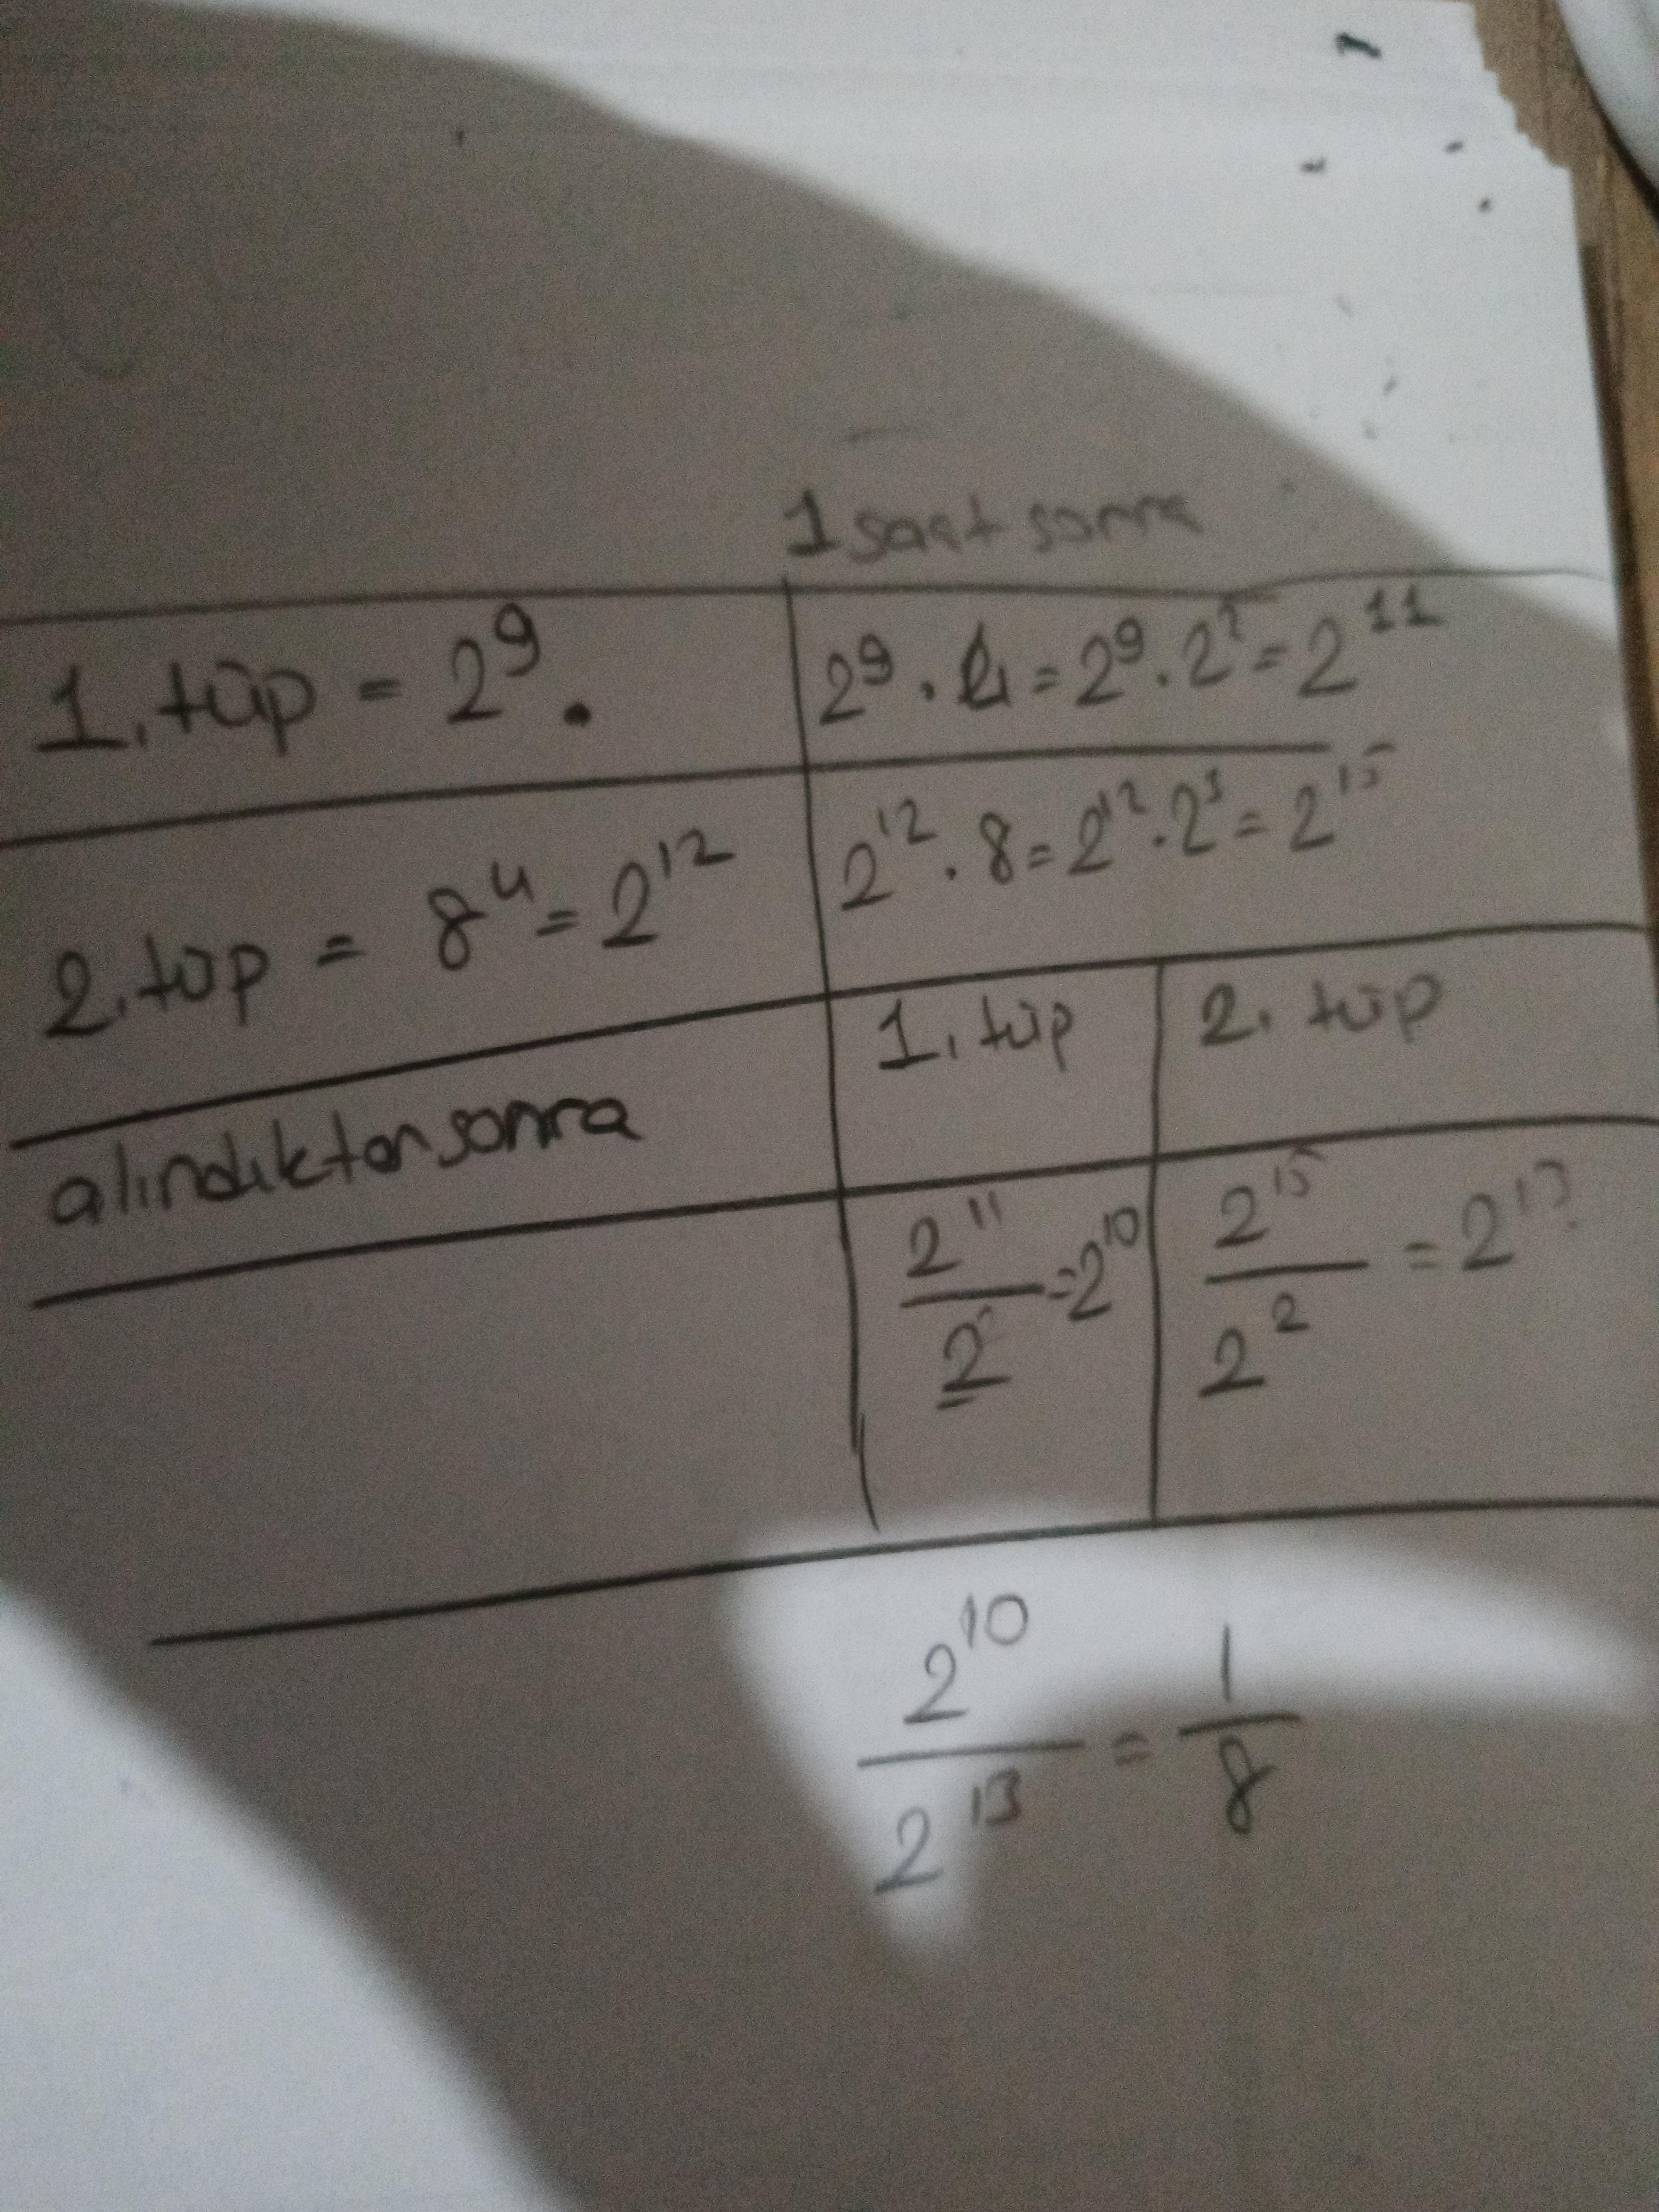 1 saat sonra
1. tüp = 2⁹. 2⁹ . 4 = 2⁹ . 2² = 2¹¹
2. tüp = 8⁴ = 2¹² 2¹² . 8 = 2¹² . 2³ = 2¹⁵
1. tüp 2. tüp
alındıktan sonra
2¹¹/2 = 2¹⁰ 2¹⁵/2² = 2¹³
2¹⁰/2¹³ = 1/8